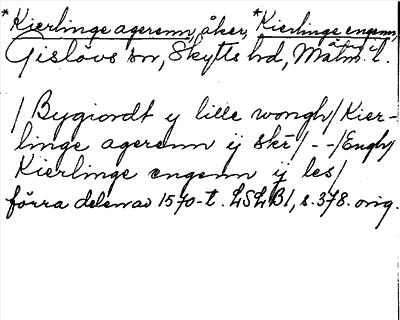 *Kierlinge agerenn, åker, *Kierlinge engenn,
Gislövs sn, Skytts hd, Malm. l.
/Bygiordt y lille wongh/Kier-
linge agerenn ÿ skr̄/--/Engh/
Kierlinge engenn ÿ les/
förra delen av 1570-t. LSLB1, s. 378. orig.